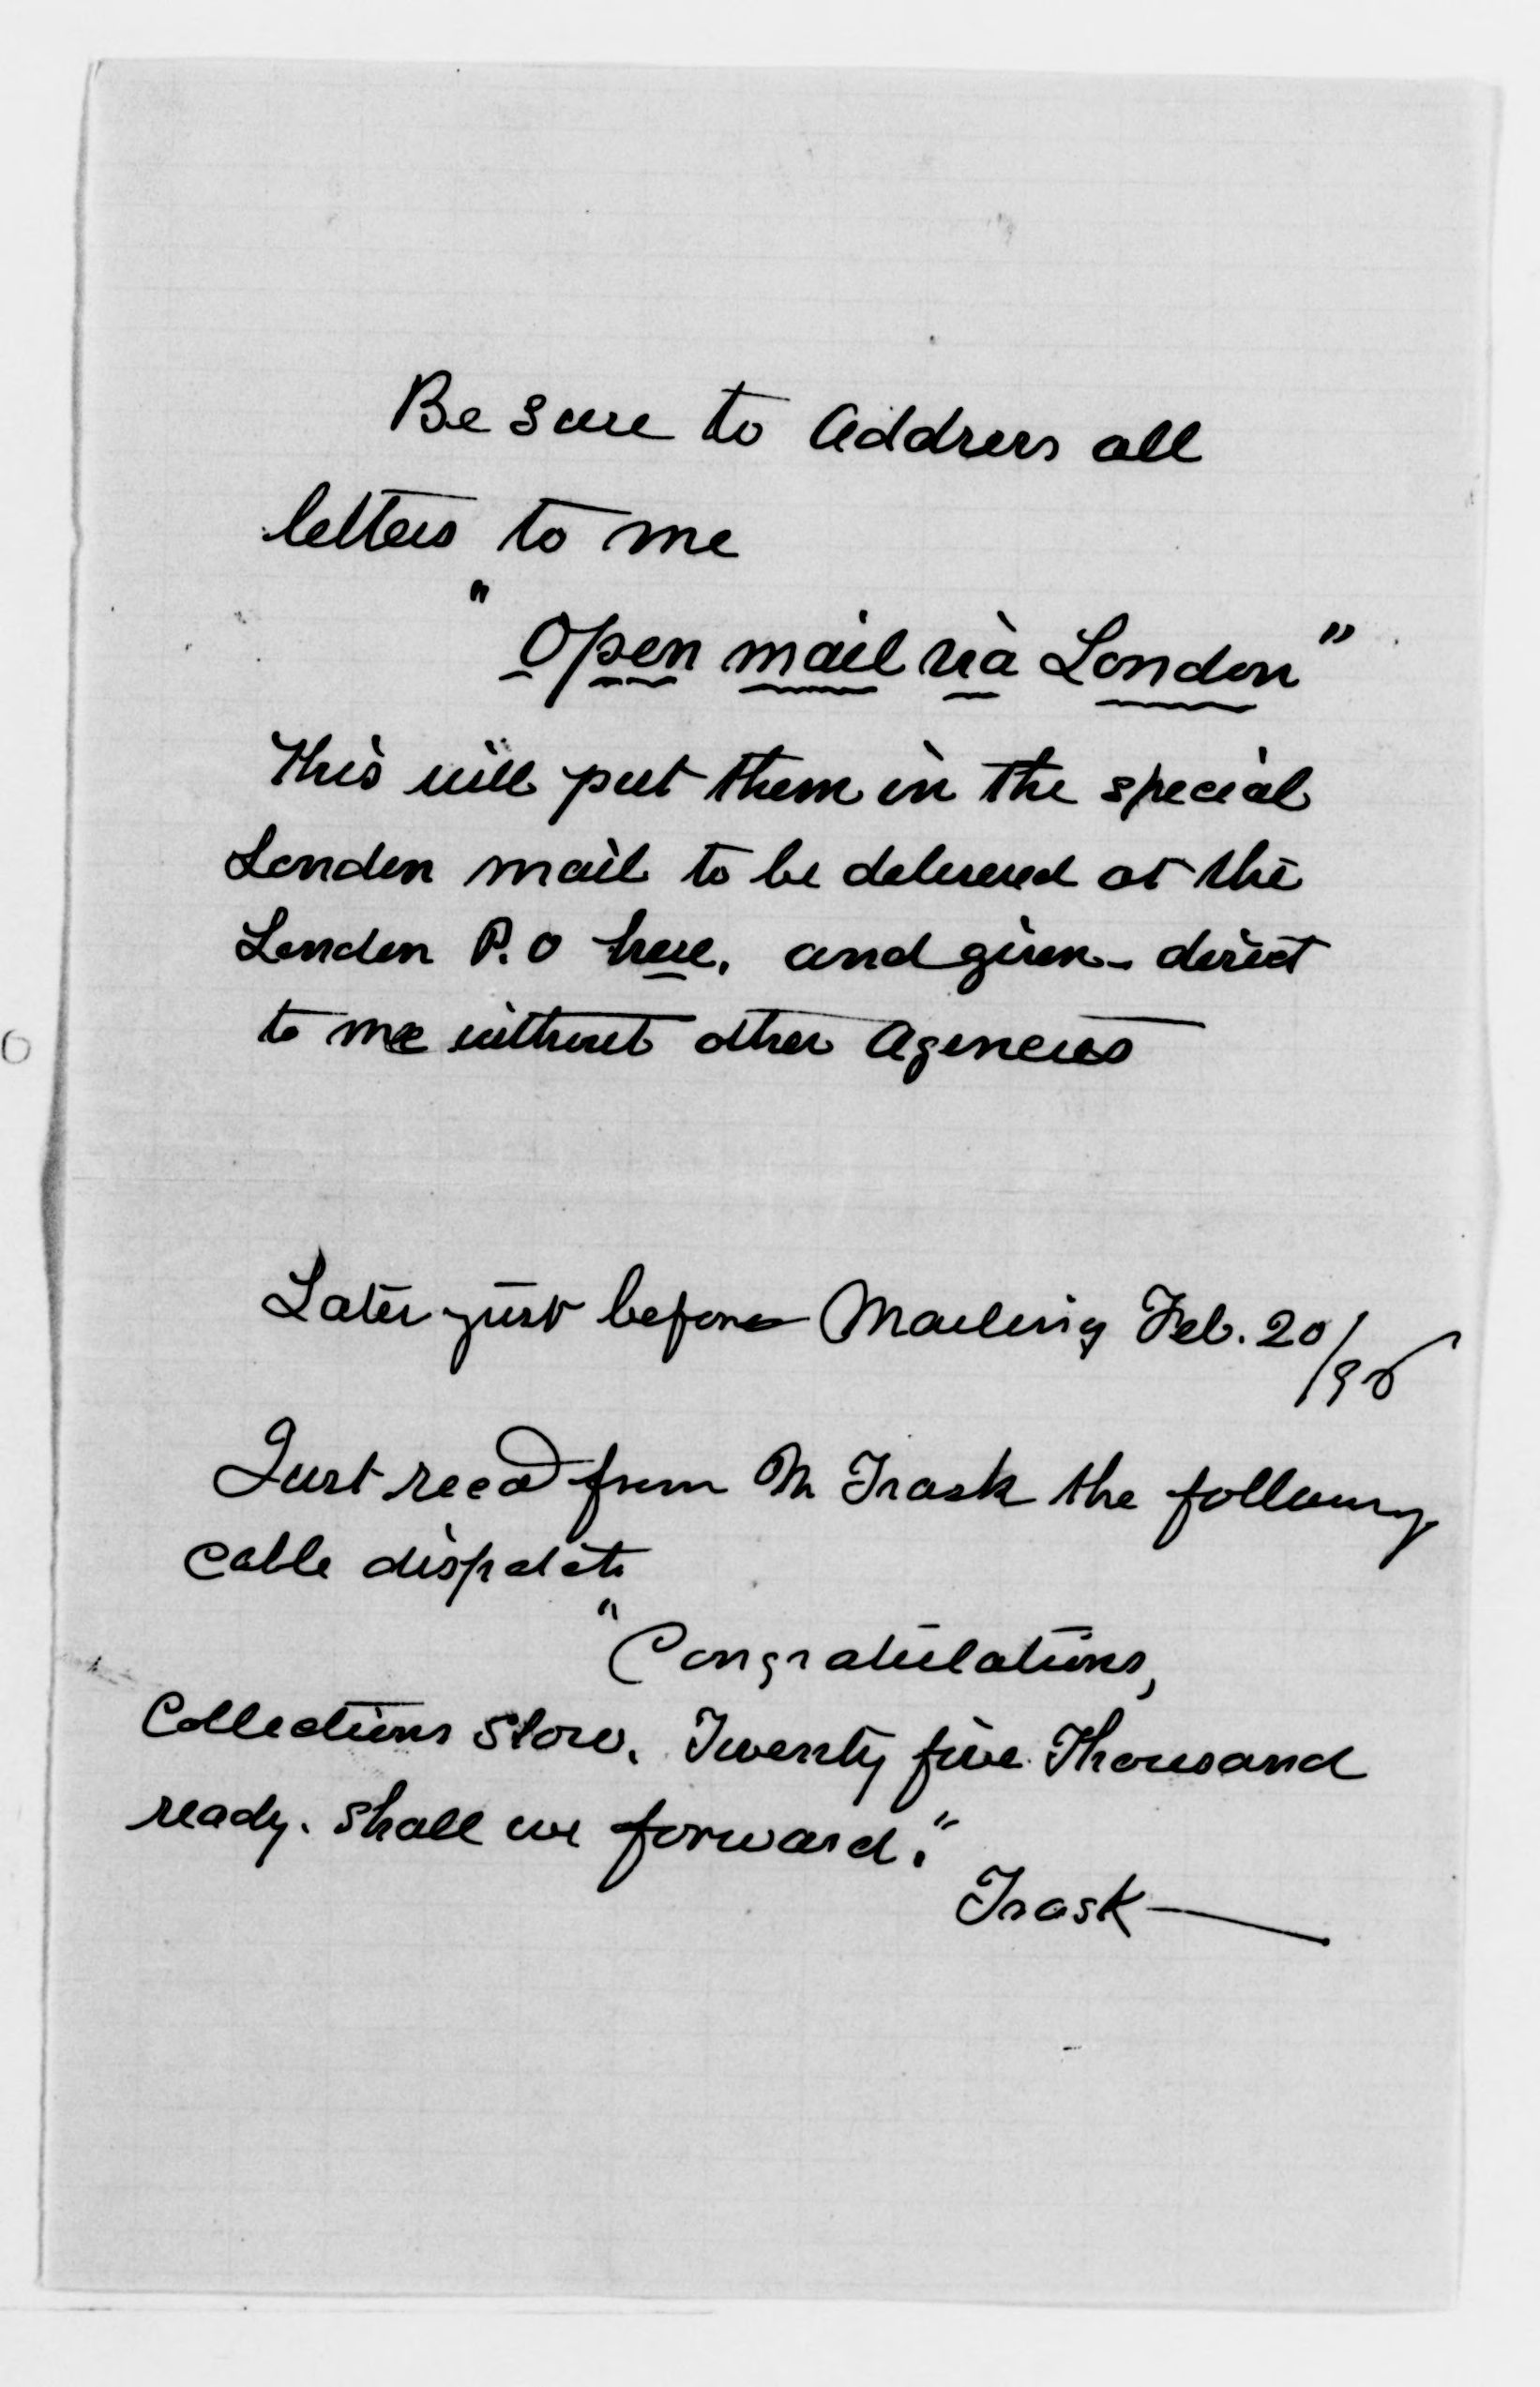 Be sure to Address all
letters to me
"Open mail via London"
This will put them in the special
London mail to be delivered at the
London P.O here, and given direct
to me without other Agencies
Later just before Mailing Feb. 20/96
Just recd from Mr Trask the following
cable dispatch
"Congratulations,
Collections Slow. Twenty five Thousand
ready. Shall we forward."
Trask